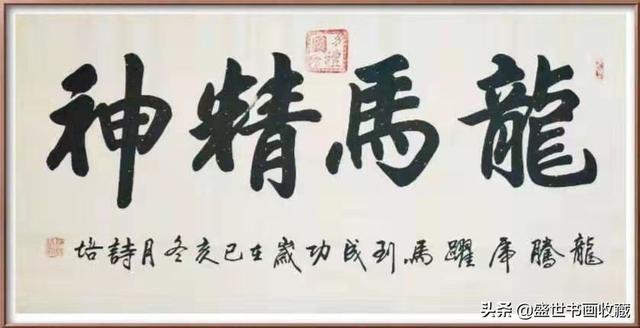 龍馬精神
龍騰虎躍馬到成功歲在己亥冬月詩培
头条 @盛世书画收藏